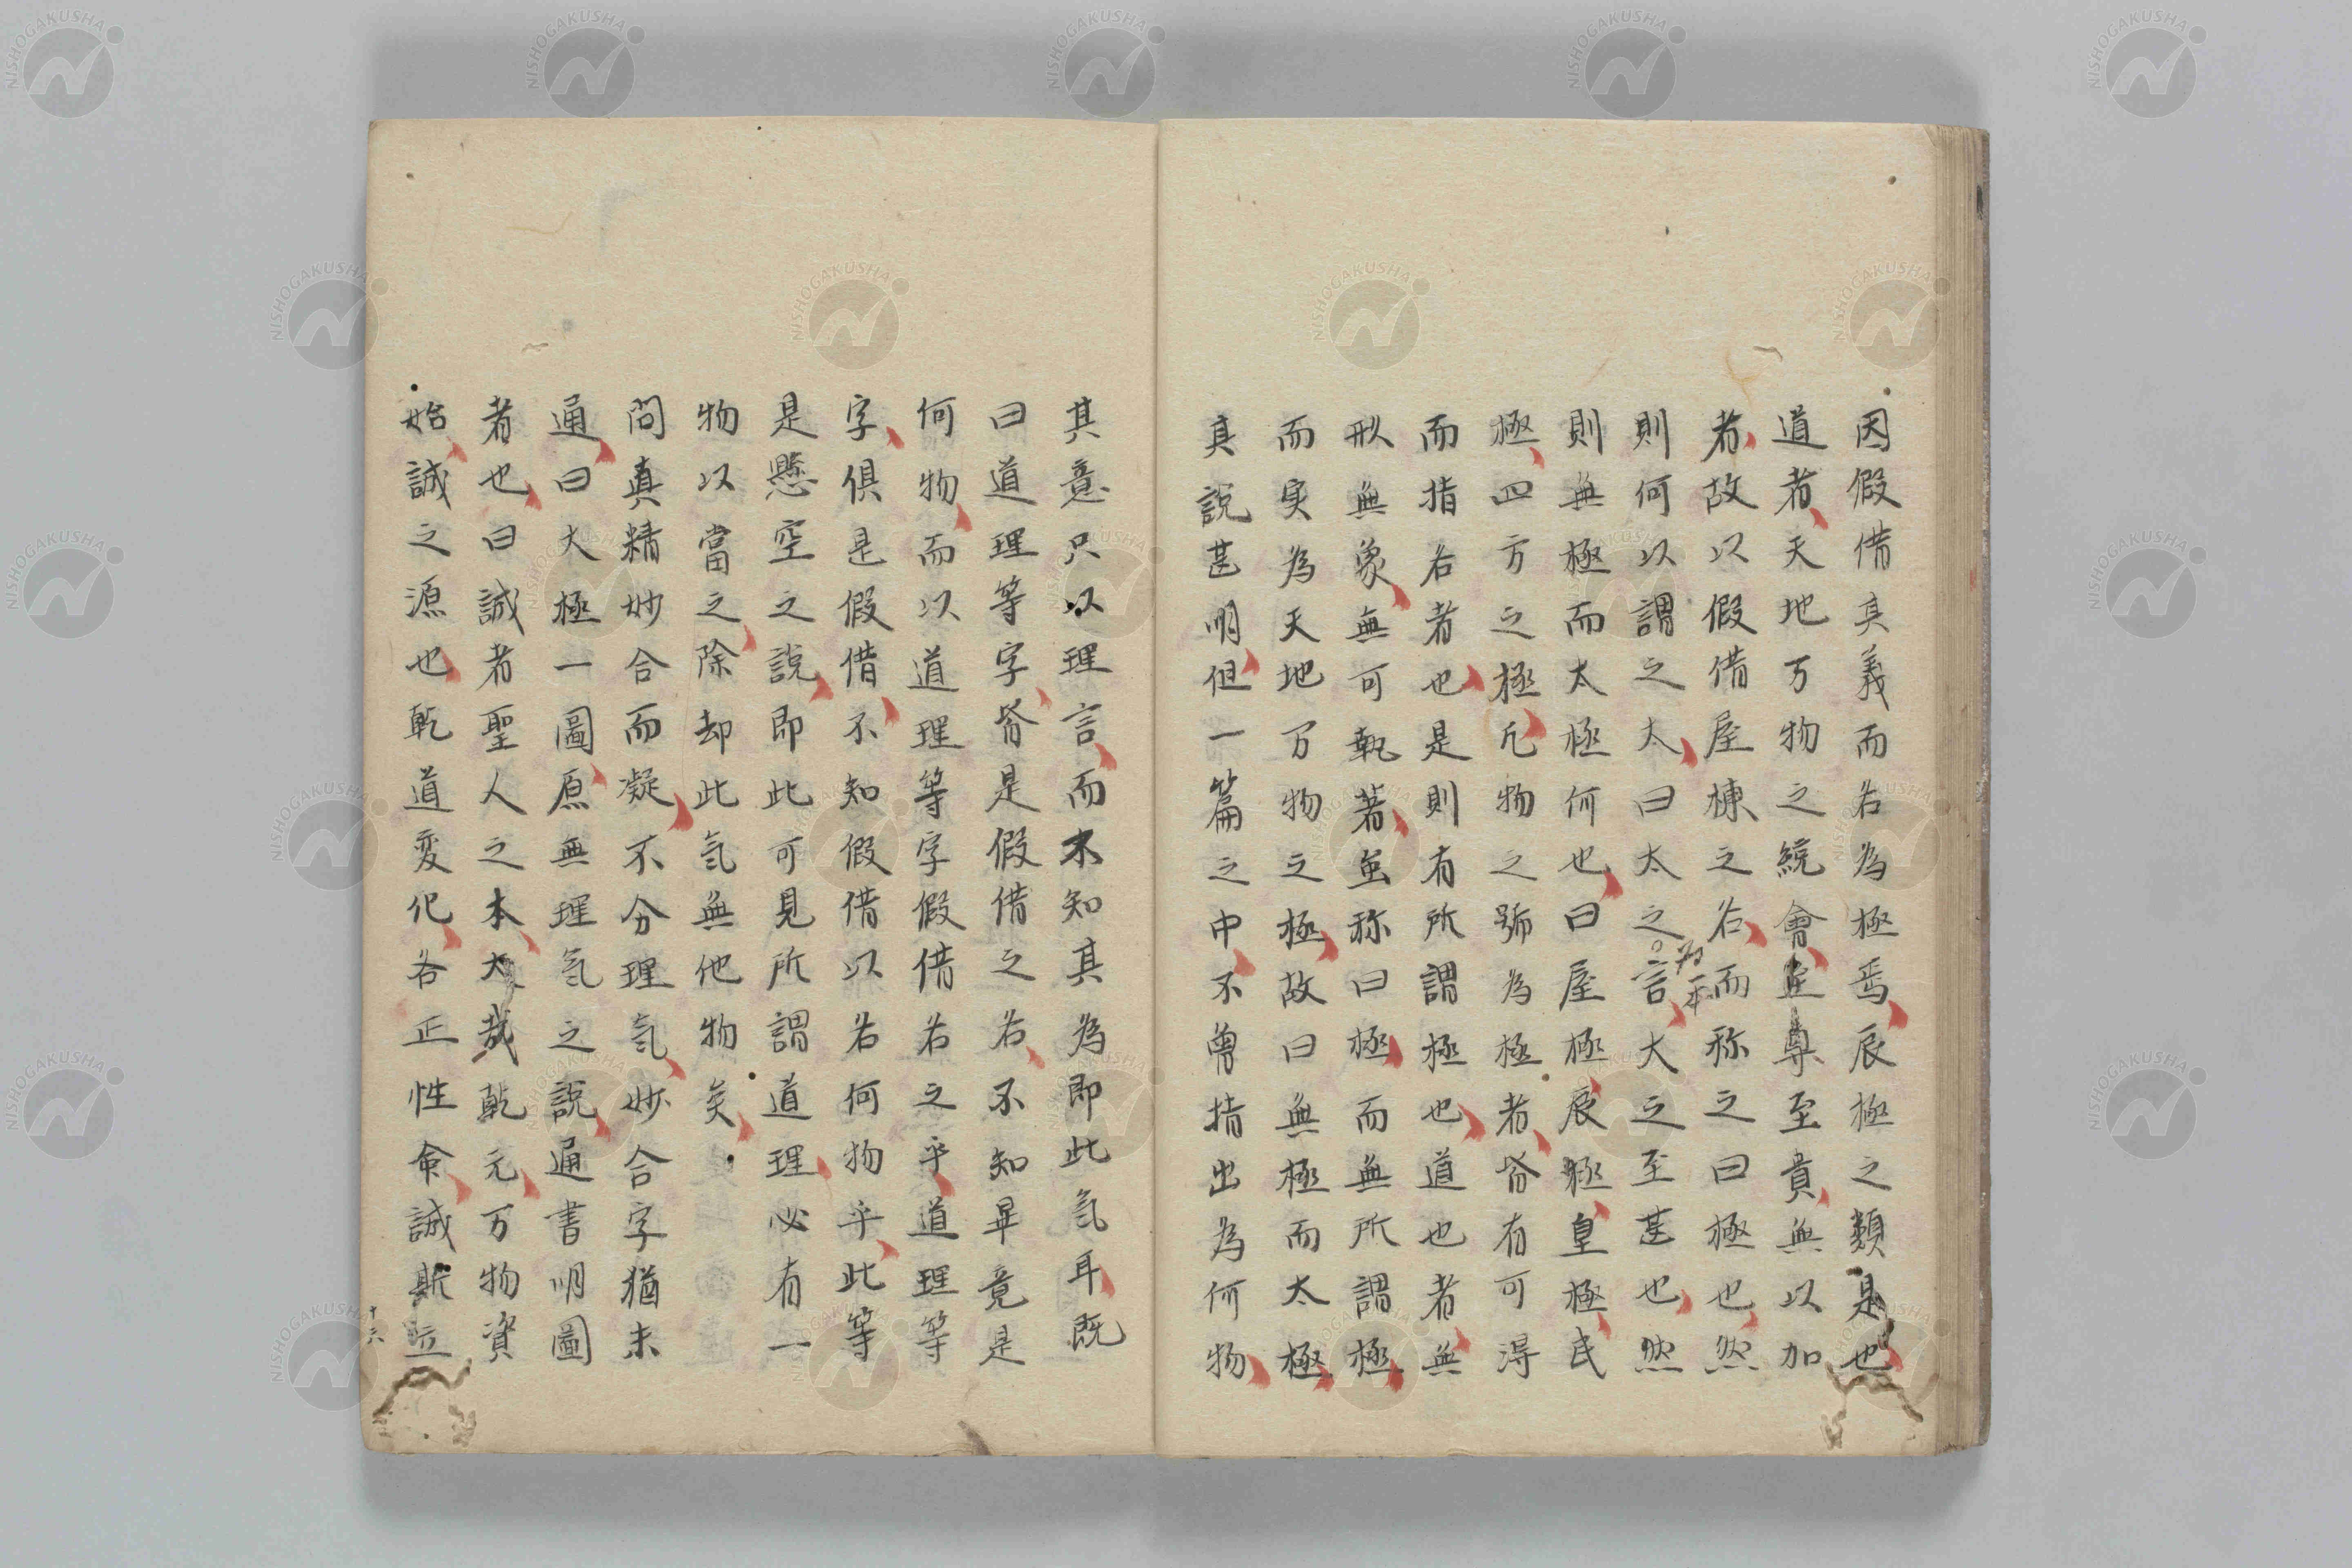 因假借其義而名為極焉辰極之類是也
道者天地万物之統會至尊至貴無以加
者故以假借屋棟之名而称之曰極也然
則何以謂之太曰太之言大之至甚也然
為一本
則無極而太極何也曰屋極辰極皇極民
極四方之極凡物之號為極者皆有可得
而指名者也是則有所謂極也道也者無
形無象無可執著虽称曰極而無所謂極
而実為天地万物之極故曰無極而太極
其說甚明但一篇之中不曾指出為何物
其意只以理言而不知其為即此氣耳既
曰道理等字皆是假借之名不知畢竟是
何物而以道理等字假借名之乎道理等
字俱是假借不知假借以名何物乎此等
是懸空之說即此可見所謂道理必有一
物以當之除却此氣無他物矣
問真精妙合而凝不分理氣妙合字猶未
通曰太極一圖原無理氣之說通書明圖
者也曰誠者聖人之本大哉乾元万物資
始誠之源也乾道変化各正性命誠斯立
十六
NISHOGAKUSHA